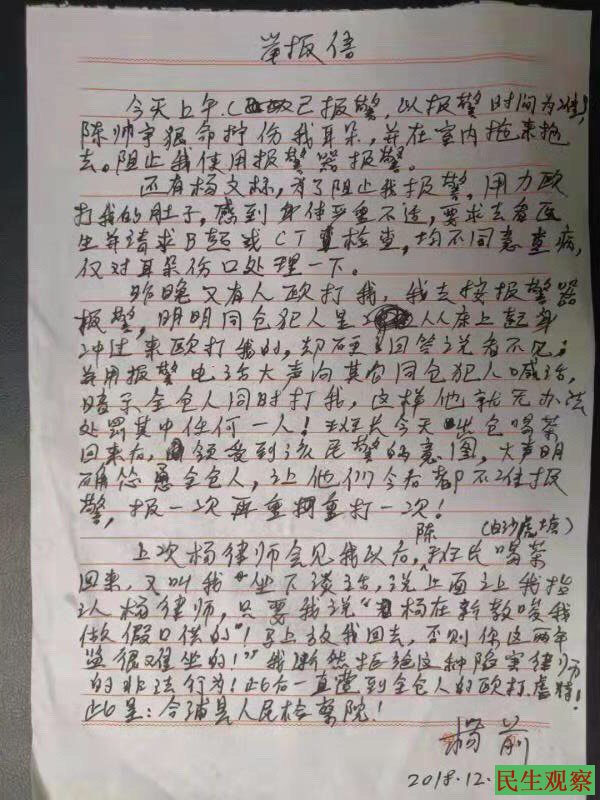 举报信
今天上午(已报警,以报警时间为准),
陈帅宇狠命拧伤我耳朵,并在室内拖来拖
去。阻止我使用报警器报警。
还有杨文标,为了阻止我报警,用力殴
打我的肚子,感到身体严重不适,要求去看医
生并请求B超或CT检查,均不同意查病,
仅对耳朵伤口处理一下。
昨晚又有人殴打我,我去按报警器
报警,明明同仓犯人是从床上起身
冲过来殴打我的,却回答说看不见;
并用报警电话大声向其它同仓犯人喊话,
暗示全仓人同时打我,这样他就无办法
处罚其中任何一人!班长今天出仓喝茶
回来后,领受到该民警的意图,大声明
确怂恿全仓人,让他们今后都不准报
警,报一次再重打一次!
陈 (白沙虎塘)
上次杨律师会见我以后,班长喝茶
回来,又叫我坐下谈话,说上面让我指
认杨律师,只要我说"杨在新教唆我
做假口供的"!马上放我回去,否则你这两年
监很难坐的!"我断然拒绝这种陷害律师
的非法行为!此后一直遭到全仓人的殴打虐待!
此呈:合浦县人民检察院!
杨前
2018.12.
民生观察